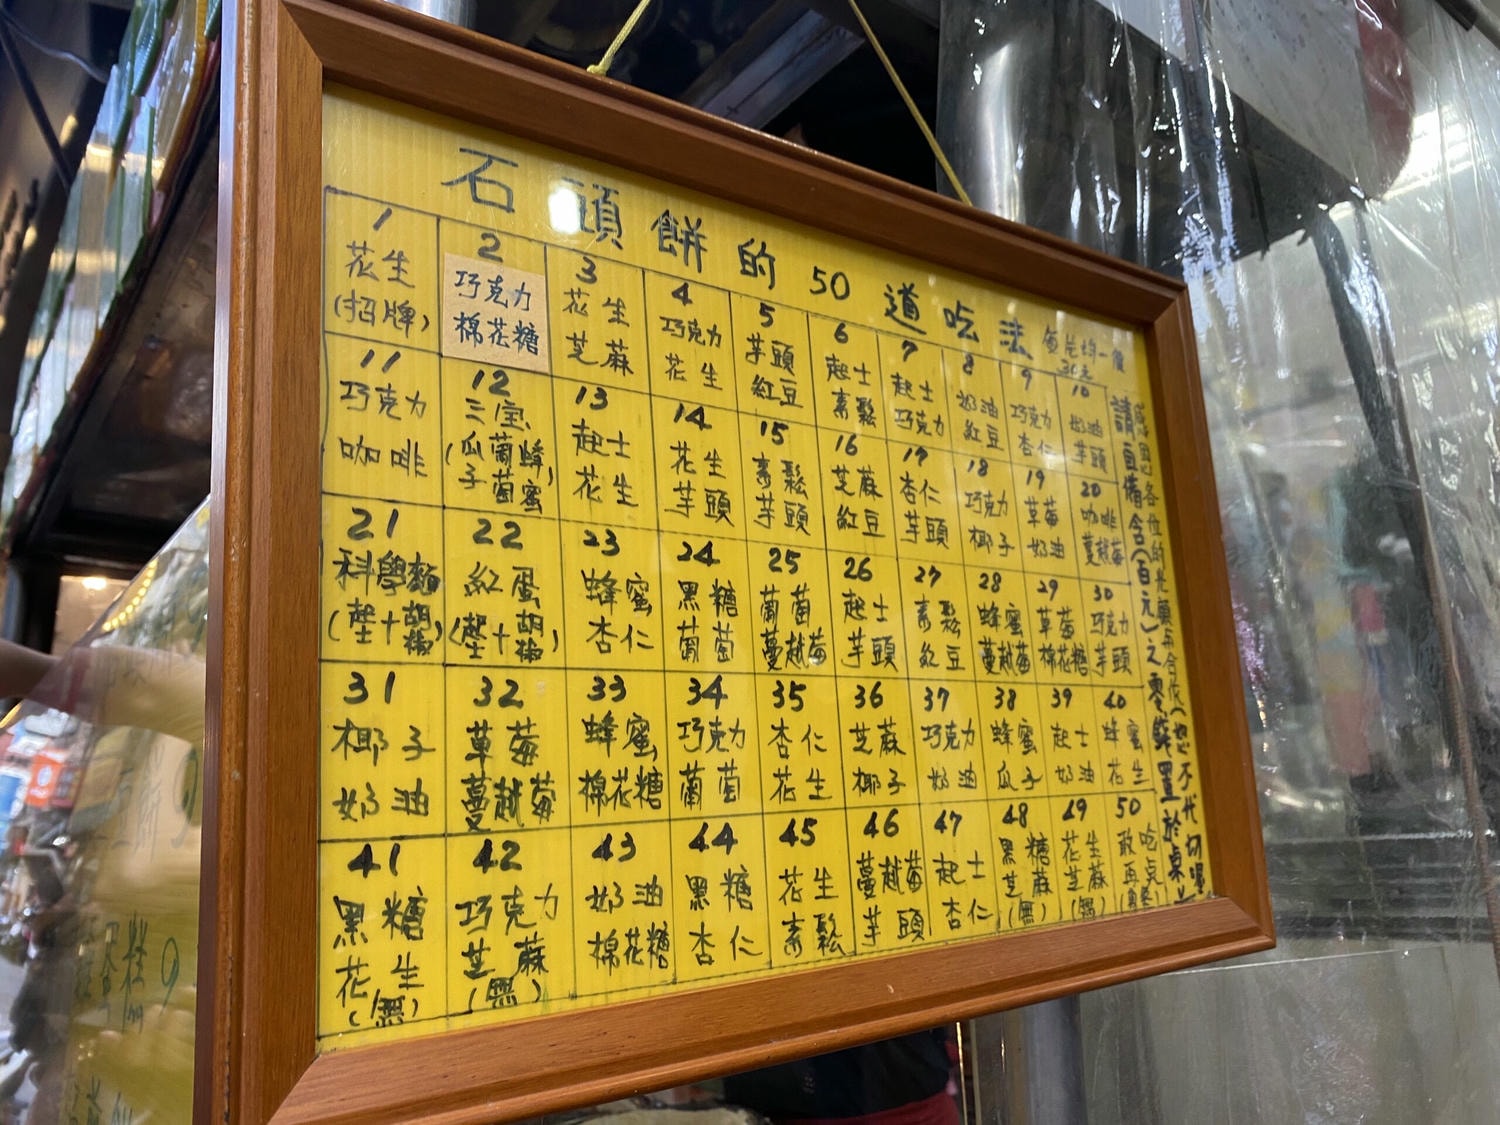 石頭餅的50道吃法
1
花生
(招牌)
2
巧克力
棉花糖
3
花生
芝蔴
4
巧克力
花生
5
芋頭
紅豆
6
起士
素鬆
7
起士
巧克力
8
奶油
紅豆
9
巧克力
杏仁
10
奶油
芋頭
11
巧克力
咖啡
12
三宝
(瓜子 葡萄 蜂蜜)
13
起士
花生
14
花生
芋頭
15
素鬆
芋頭
16
芝蔴
紅豆
17
杏仁
芋頭
18
巧克力
椰子
19
草莓
奶油
20
咖啡
蔓越莓
21
科學麵
(椒十胡椒)
22
紅蛋
(椒十胡椒)
23
蜂蜜
杏仁
24
黑糖
葡萄
25
葡萄
蔓越莓
26
起士
芋頭
27
素鬆
紅豆
28
蜂蜜
蔓越莓
29
草莓
棉花糖
30
巧克力
芋頭
31
椰子
奶油
32
草莓
蔓越莓
33
蜂蜜
棉花糖
34
巧克力
葡萄
35
杏仁
花生
36
芝蔴
椰子
37
巧克力
奶油
38
蜂蜜
瓜子
39
起士
奶油
40
蜂蜜
花生
41
黑糖
花生
(無)
42
巧克力
芝蔴
(無)
43
奶油
棉花糖
44
黑糖
杏仁
45
花生
素鬆
46
蔓越莓
芋頭
47
起士
杏仁
48
黑糖
芝蔴
(無)
49
花生
芝蔴
(無)
50
敢吃
再桌
請自備含(百元)之零錢置於桌上
感恩各位的光顧與合作(恕不代切喔